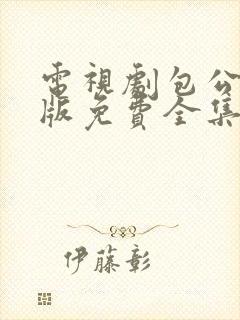 電視劇包公
版免費全集
伊藤彰